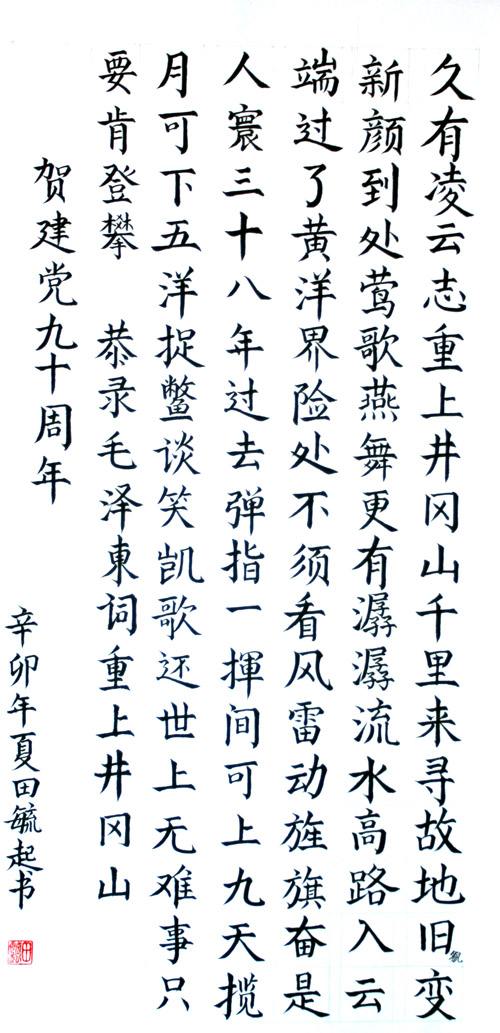 久有凌云志重上井冈山千里来寻故地旧貌变
新颜到处莺歌燕舞更有潺潺流水高路入云
端过了黄洋界险处不须看风雷动旌旗奋是
人寰三十八年过去弹指一揮间可上九天揽
月可下五洋捉鳖谈笑凯歌还世上无难事只
要肯登攀 恭录毛泽東词重上井冈山
贺建党九十周年
辛卯年夏田毓起书